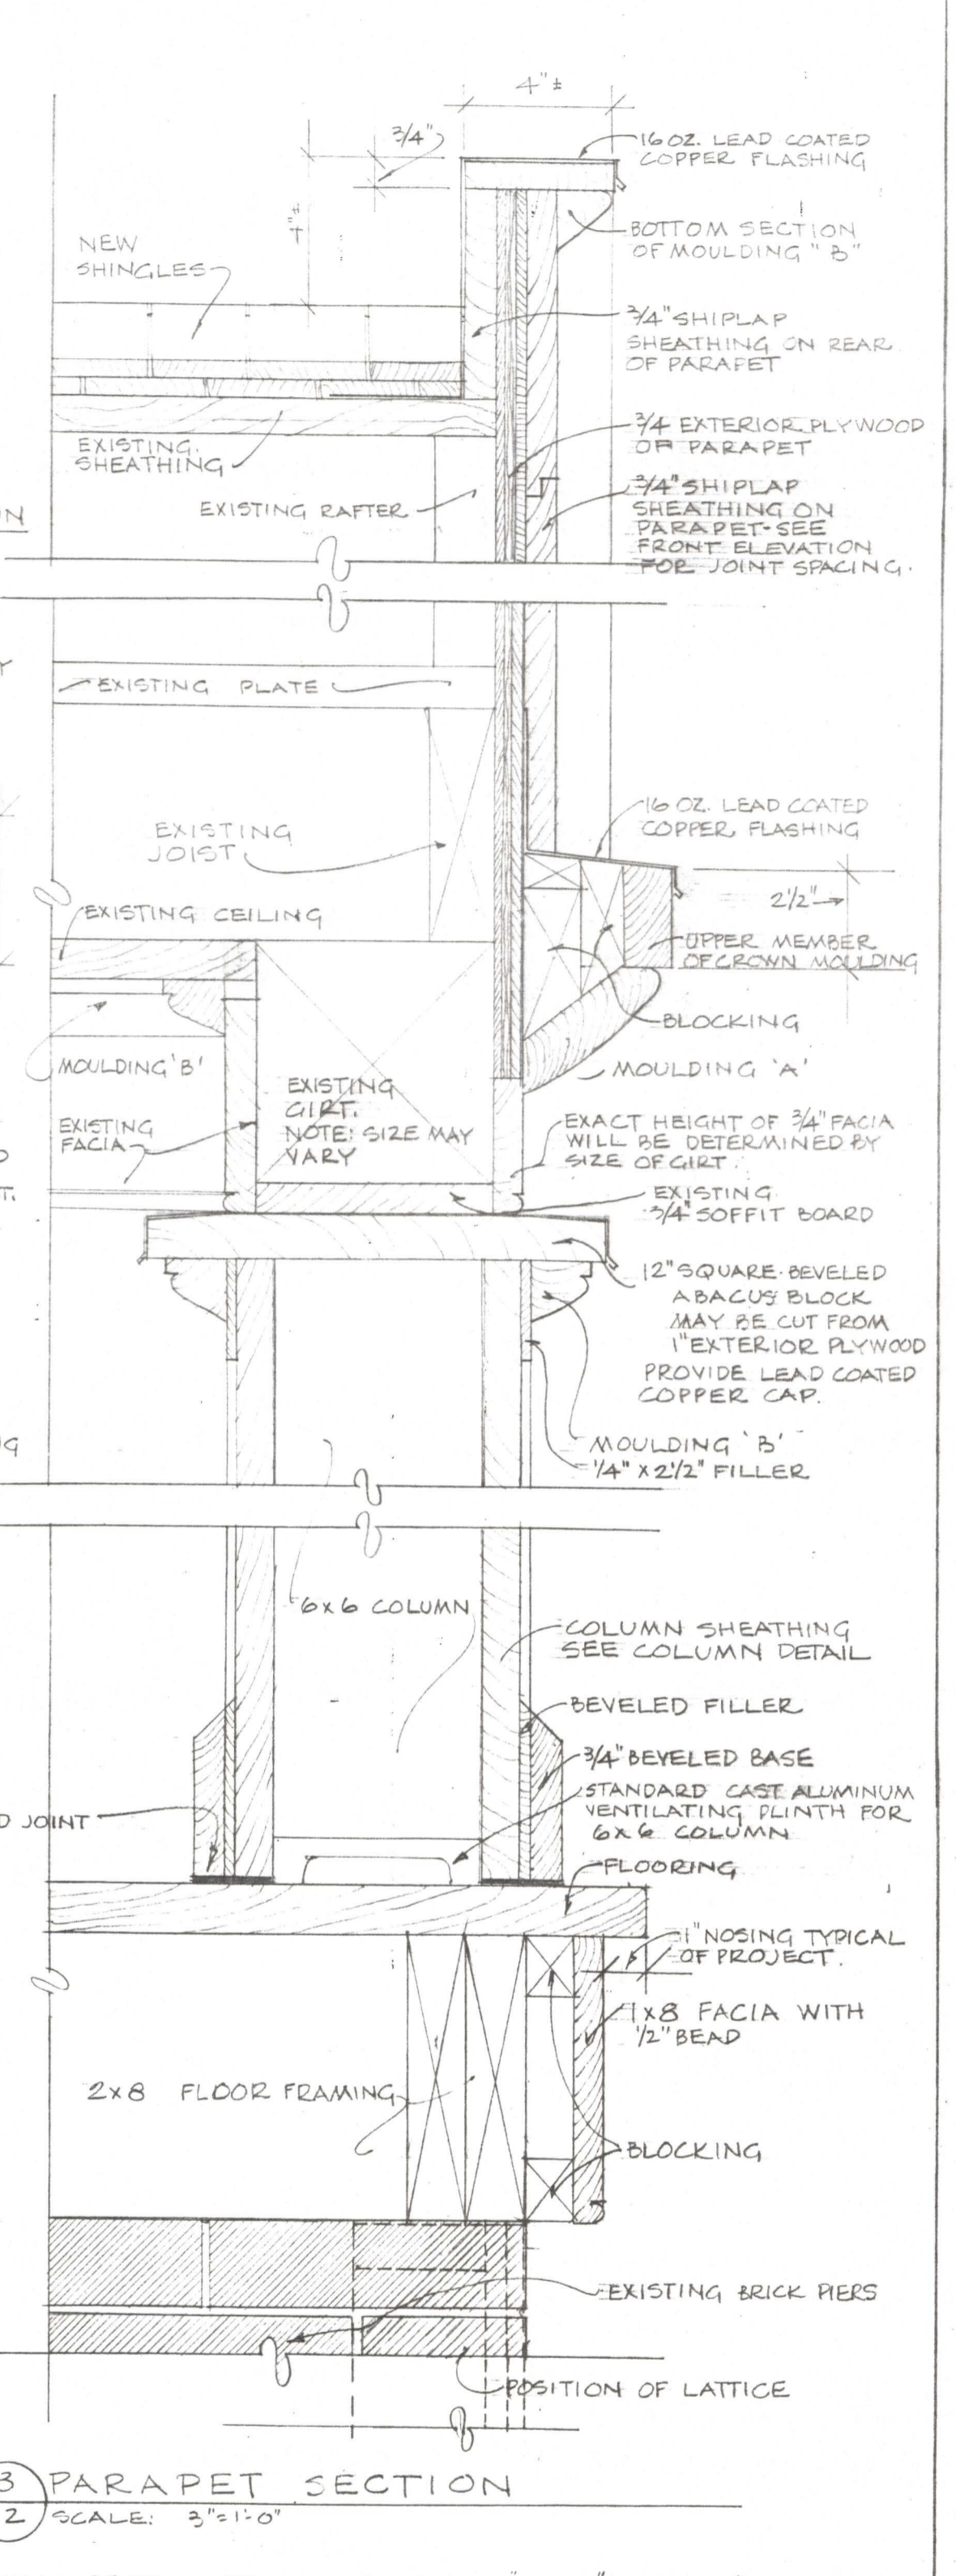 4"±
3/4"
16 OZ. LEAD COATED
COPPER FLASHING
4"
BOTTOM SECTION
OF MOULDING "B"
NEW
SHINGLES
3/4" SHIPLAP
SHEATHING ON REAR
OF PARAPET
3/4 EXTERIOR PLYWOOD
OF PARAPET
EXISTING
SHEATHING
3/4" SHIPLAP
SHEATHING ON
PARAPET-SEE
FRONT ELEVATION
FOR JOINT SPACING.
EXISTING RAFTER
EXISTING PLATE
16 OZ. LEAD COATED
COPPER FLASHING
EXISTING
JOIST
2 1/2"
EXISTING CEILING
UPPER MEMBER
OF CROWN MOULDING
BLOCKING
MOULDING 'B'
MOULDING 'A'
EXISTING
GIRT.
NOTE: SIZE MAY
VARY
EXISTING
FACIA
EXACT HEIGHT OF 3/4" FACIA
WILL BE DETERMINED BY
SIZE OF GIRT.
EXISTING
3/4" SOFFIT BOARD
12" SQUARE BEVELED
ABACUS BLOCK
MAY BE CUT FROM
1" EXTERIOR PLYWOOD
PROVIDE LEAD COATED
COPPER CAP.
MOULDING 'B'
1/4" X 2 1/2" FILLER
6x6 COLUMN
COLUMN SHEATHING
SEE COLUMN DETAIL
BEVELED FILLER
3/4" BEVELED BASE
STANDARD CAST ALUMINUM
VENTILATING PLINTH FOR
6x6 COLUMN
D JOINT
FLOORING
1" NOSING TYPICAL
OF PROJECT.
1x8 FACIA WITH
1/2" BEAD
2x8 FLOOR FRAMING
BLOCKING
EXISTING BRICK PIERS
POSITION OF LATTICE
3
2
PARAPET SECTION
SCALE: 3"=1'-0"